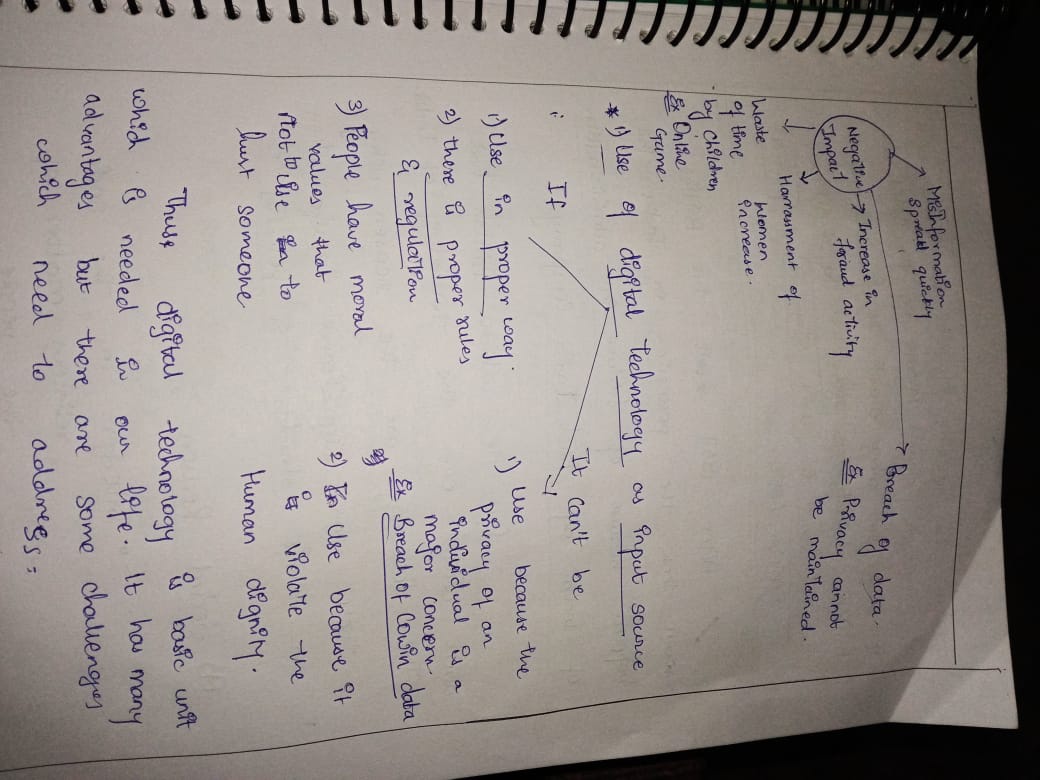 Misinformation
spread quickly
Negative
Impact
→ Increase in
fraud activity
Breach of data.
Ex Privacy cannot
be maintained.
Harrasment of
Women
increase.
Waste
of time
by children
Ex Online
Game.
* 1) Use of digital technology as input source
: If
1) Use in proper way.
2) there is proper rules
& regulation
3) People have moral
values that
Not to use to
hurt someone
It can't be
1) Use because the
privacy of an
individual is a
major concern.
Ex Breach of Cowin data
2) Use because it
is violate the
Human dignity.
Thus, digital technology is basic unit
which is needed in our life. It has many
advantages but there are some challenges
which need to address.